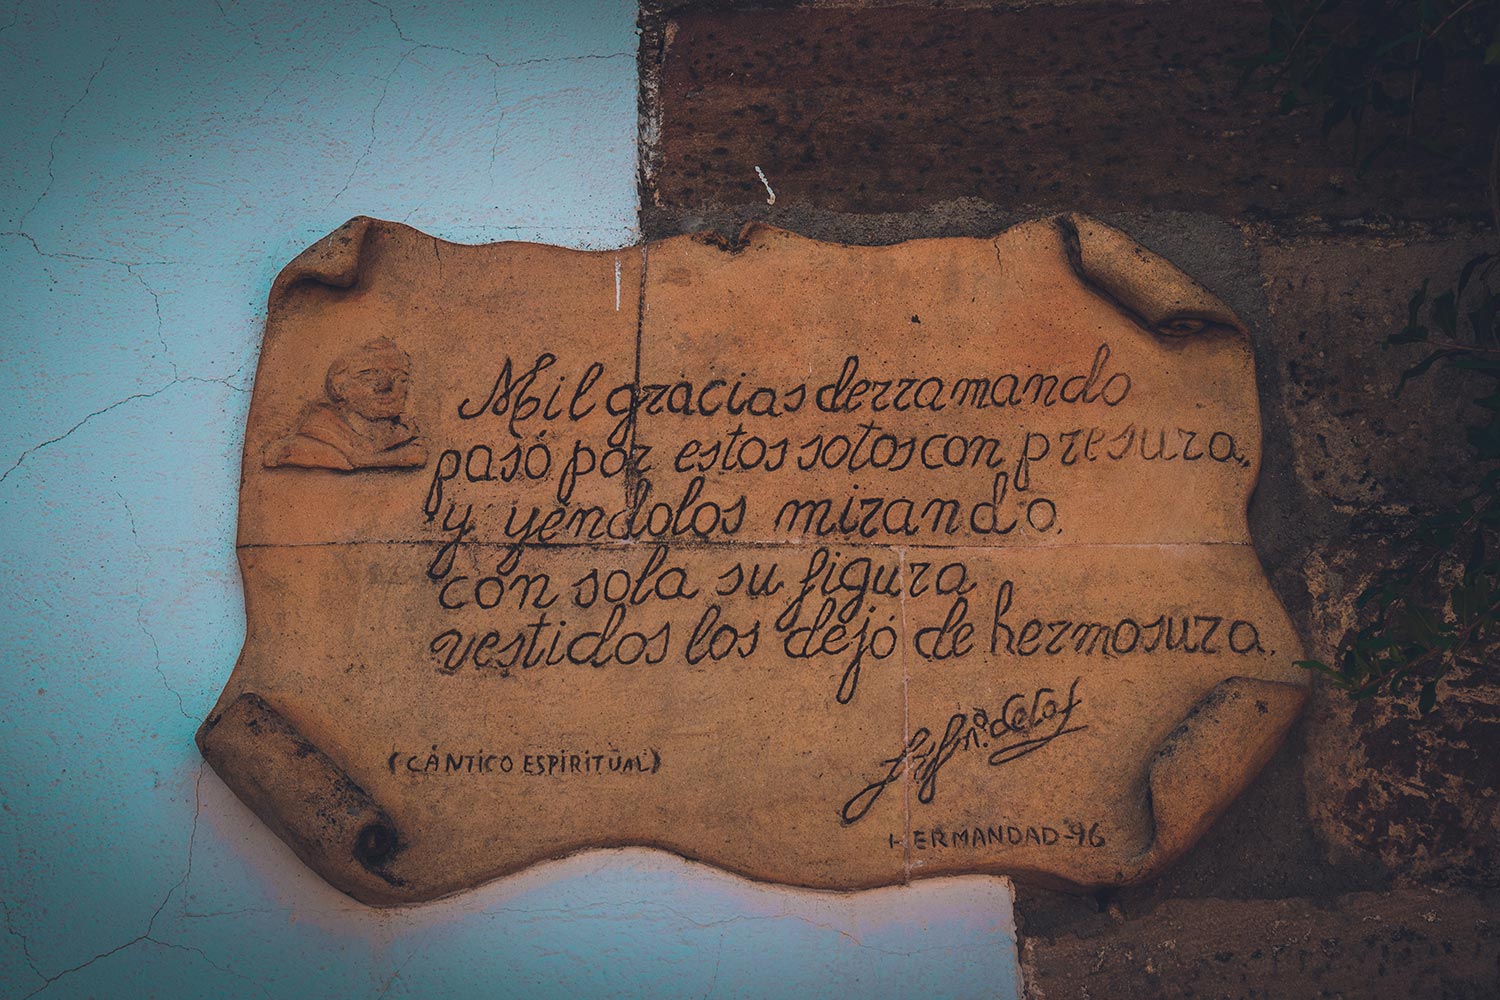 Mil gracias derramando
pasó por estos sotos con presura,
y yéndolos mirando,
con sola su figura
vestidos los dejó de hermosura.
(CÁNTICO ESPIRITUAL)
HERMANDAD-96